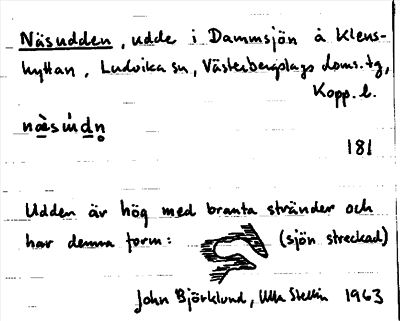 Näsudden, udde i Dammsjön å Klens-
hyttan, Ludvika sn, Västerbergslags doms.tg,
Kopp. l.
181
Udden är hög med branta stränder och
har denna form: (sjön streckad)
John Björklund, Ulla Stellin 1963